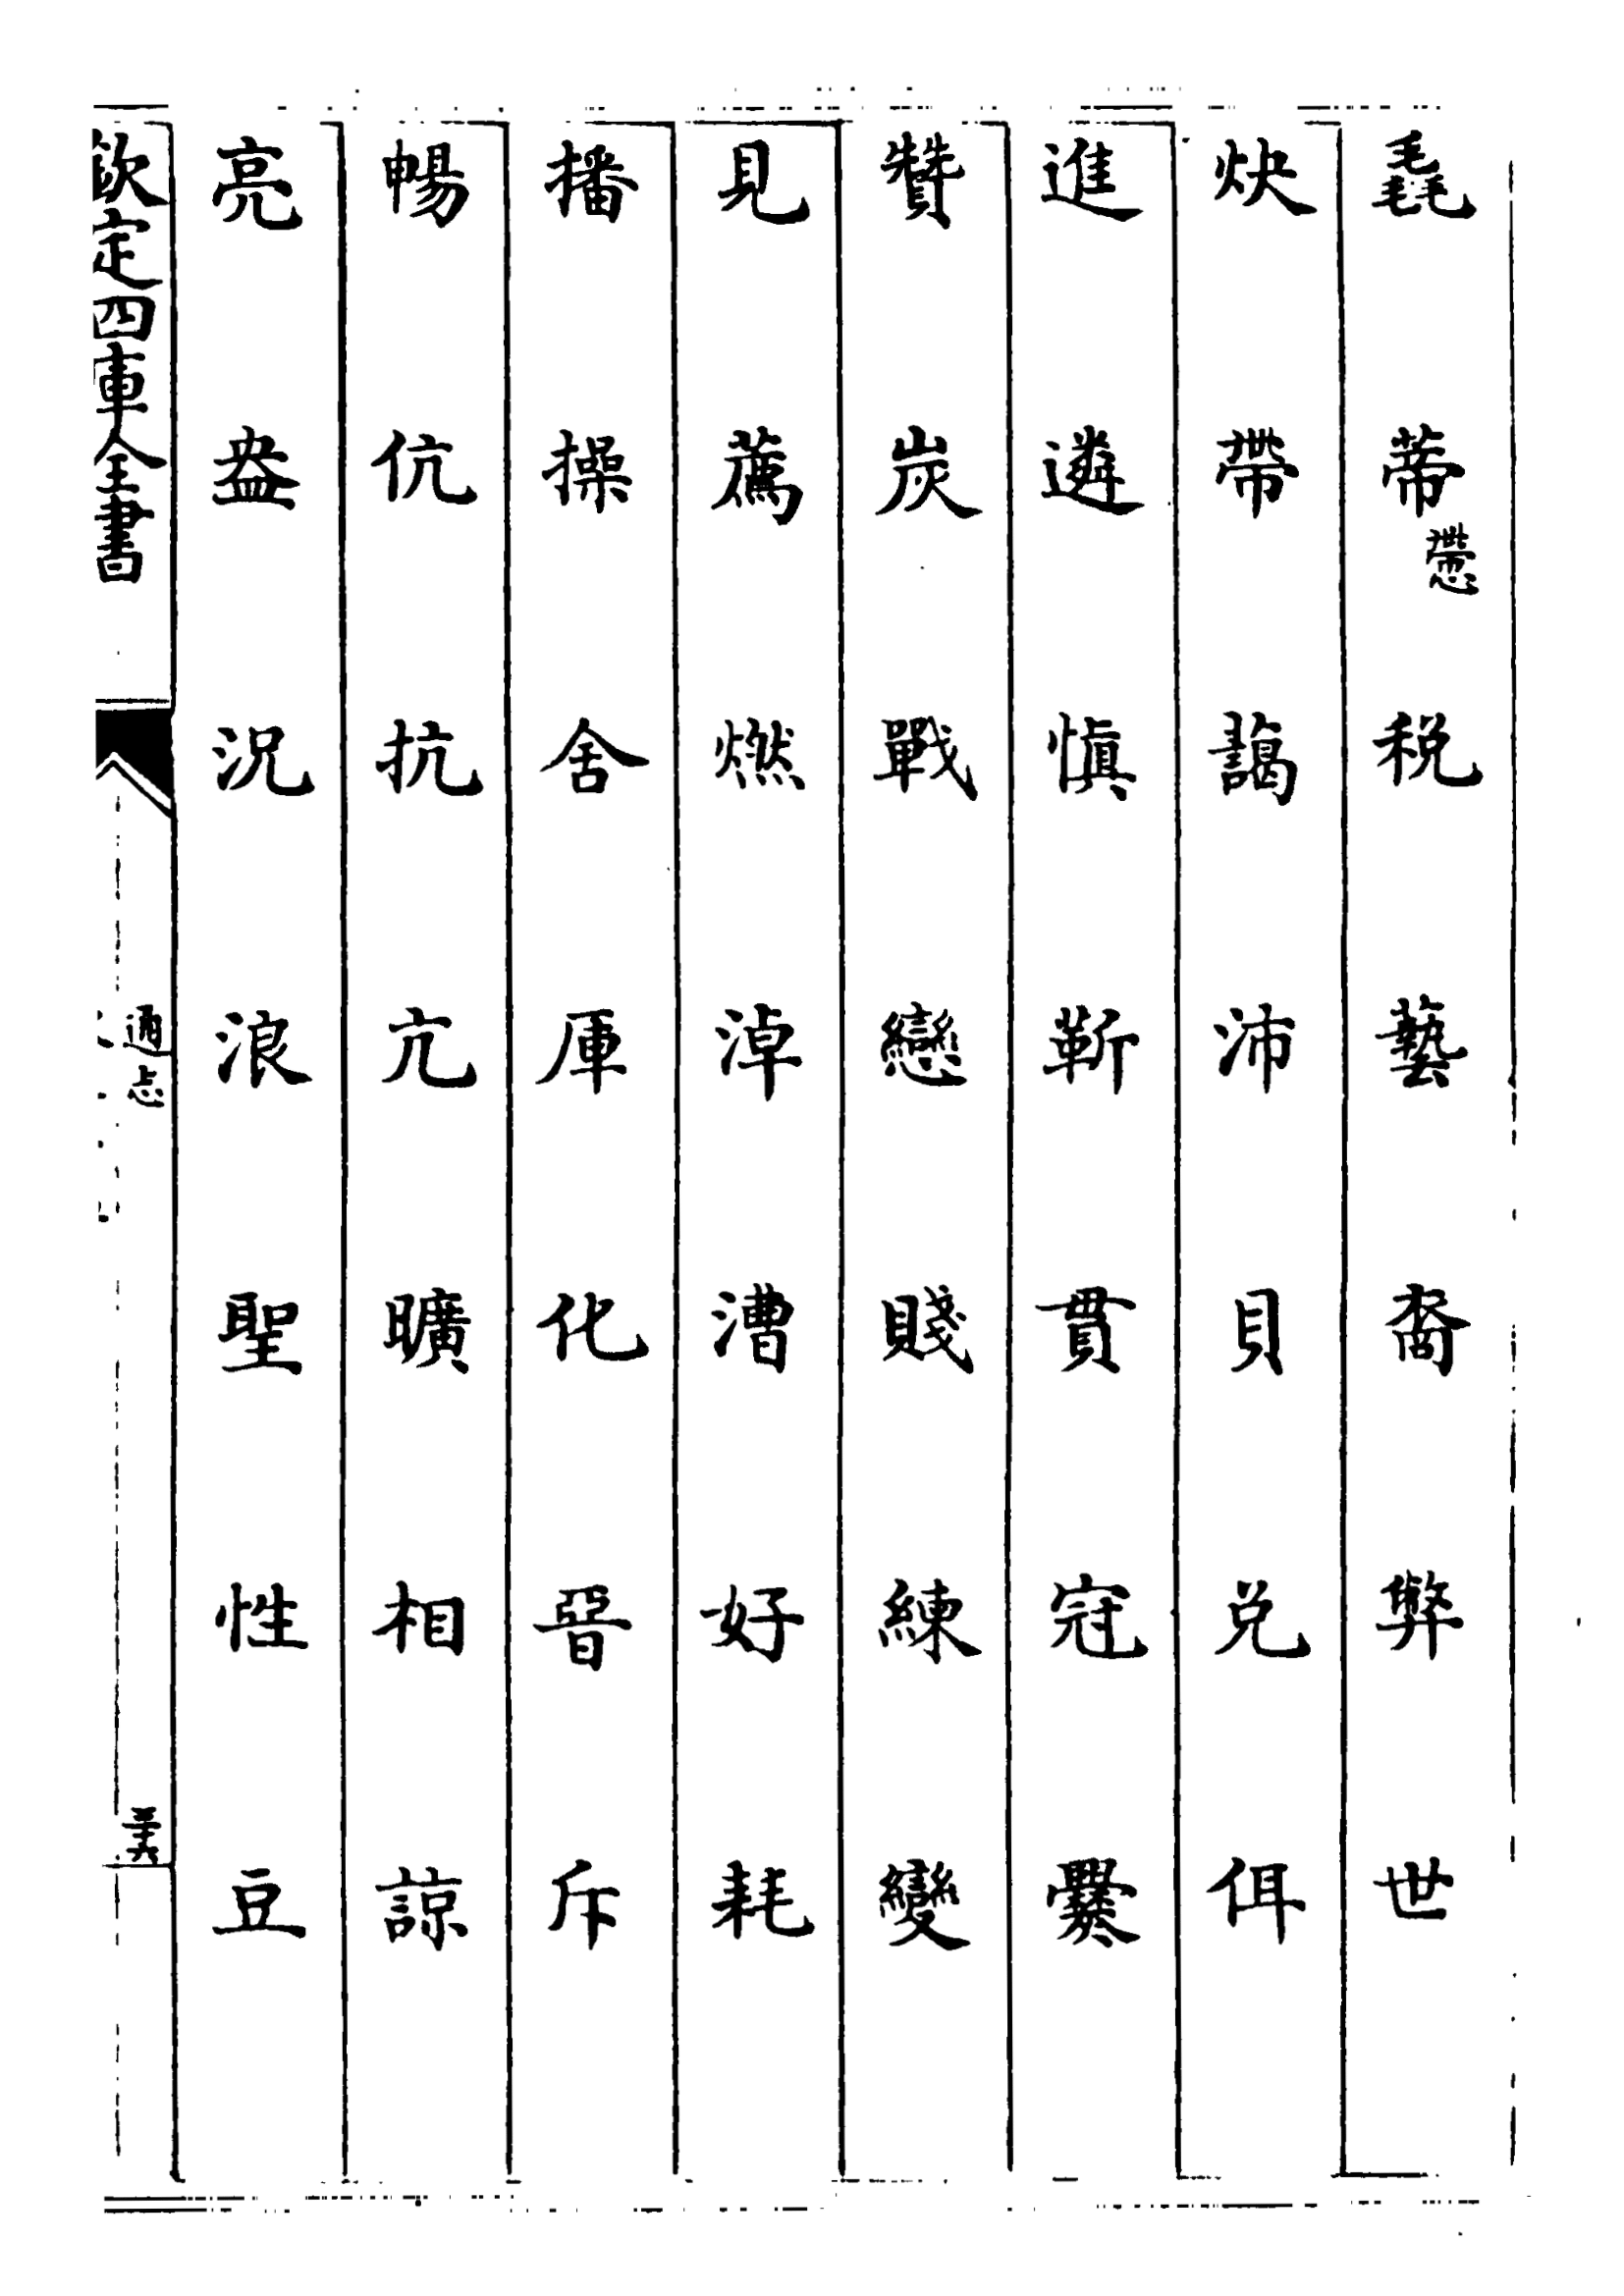 毳蒂㿃税藝裔弊世
炔帶藹沛貝兌佴
進遴愼靳貫冠爨
贊炭戰戀賤練變
見薦燃淖漕好耗
播操舍厙化晉斥
暢伉抗亢曠相諒
亮盎況浪聖性豆
欽定四庫全書
通志